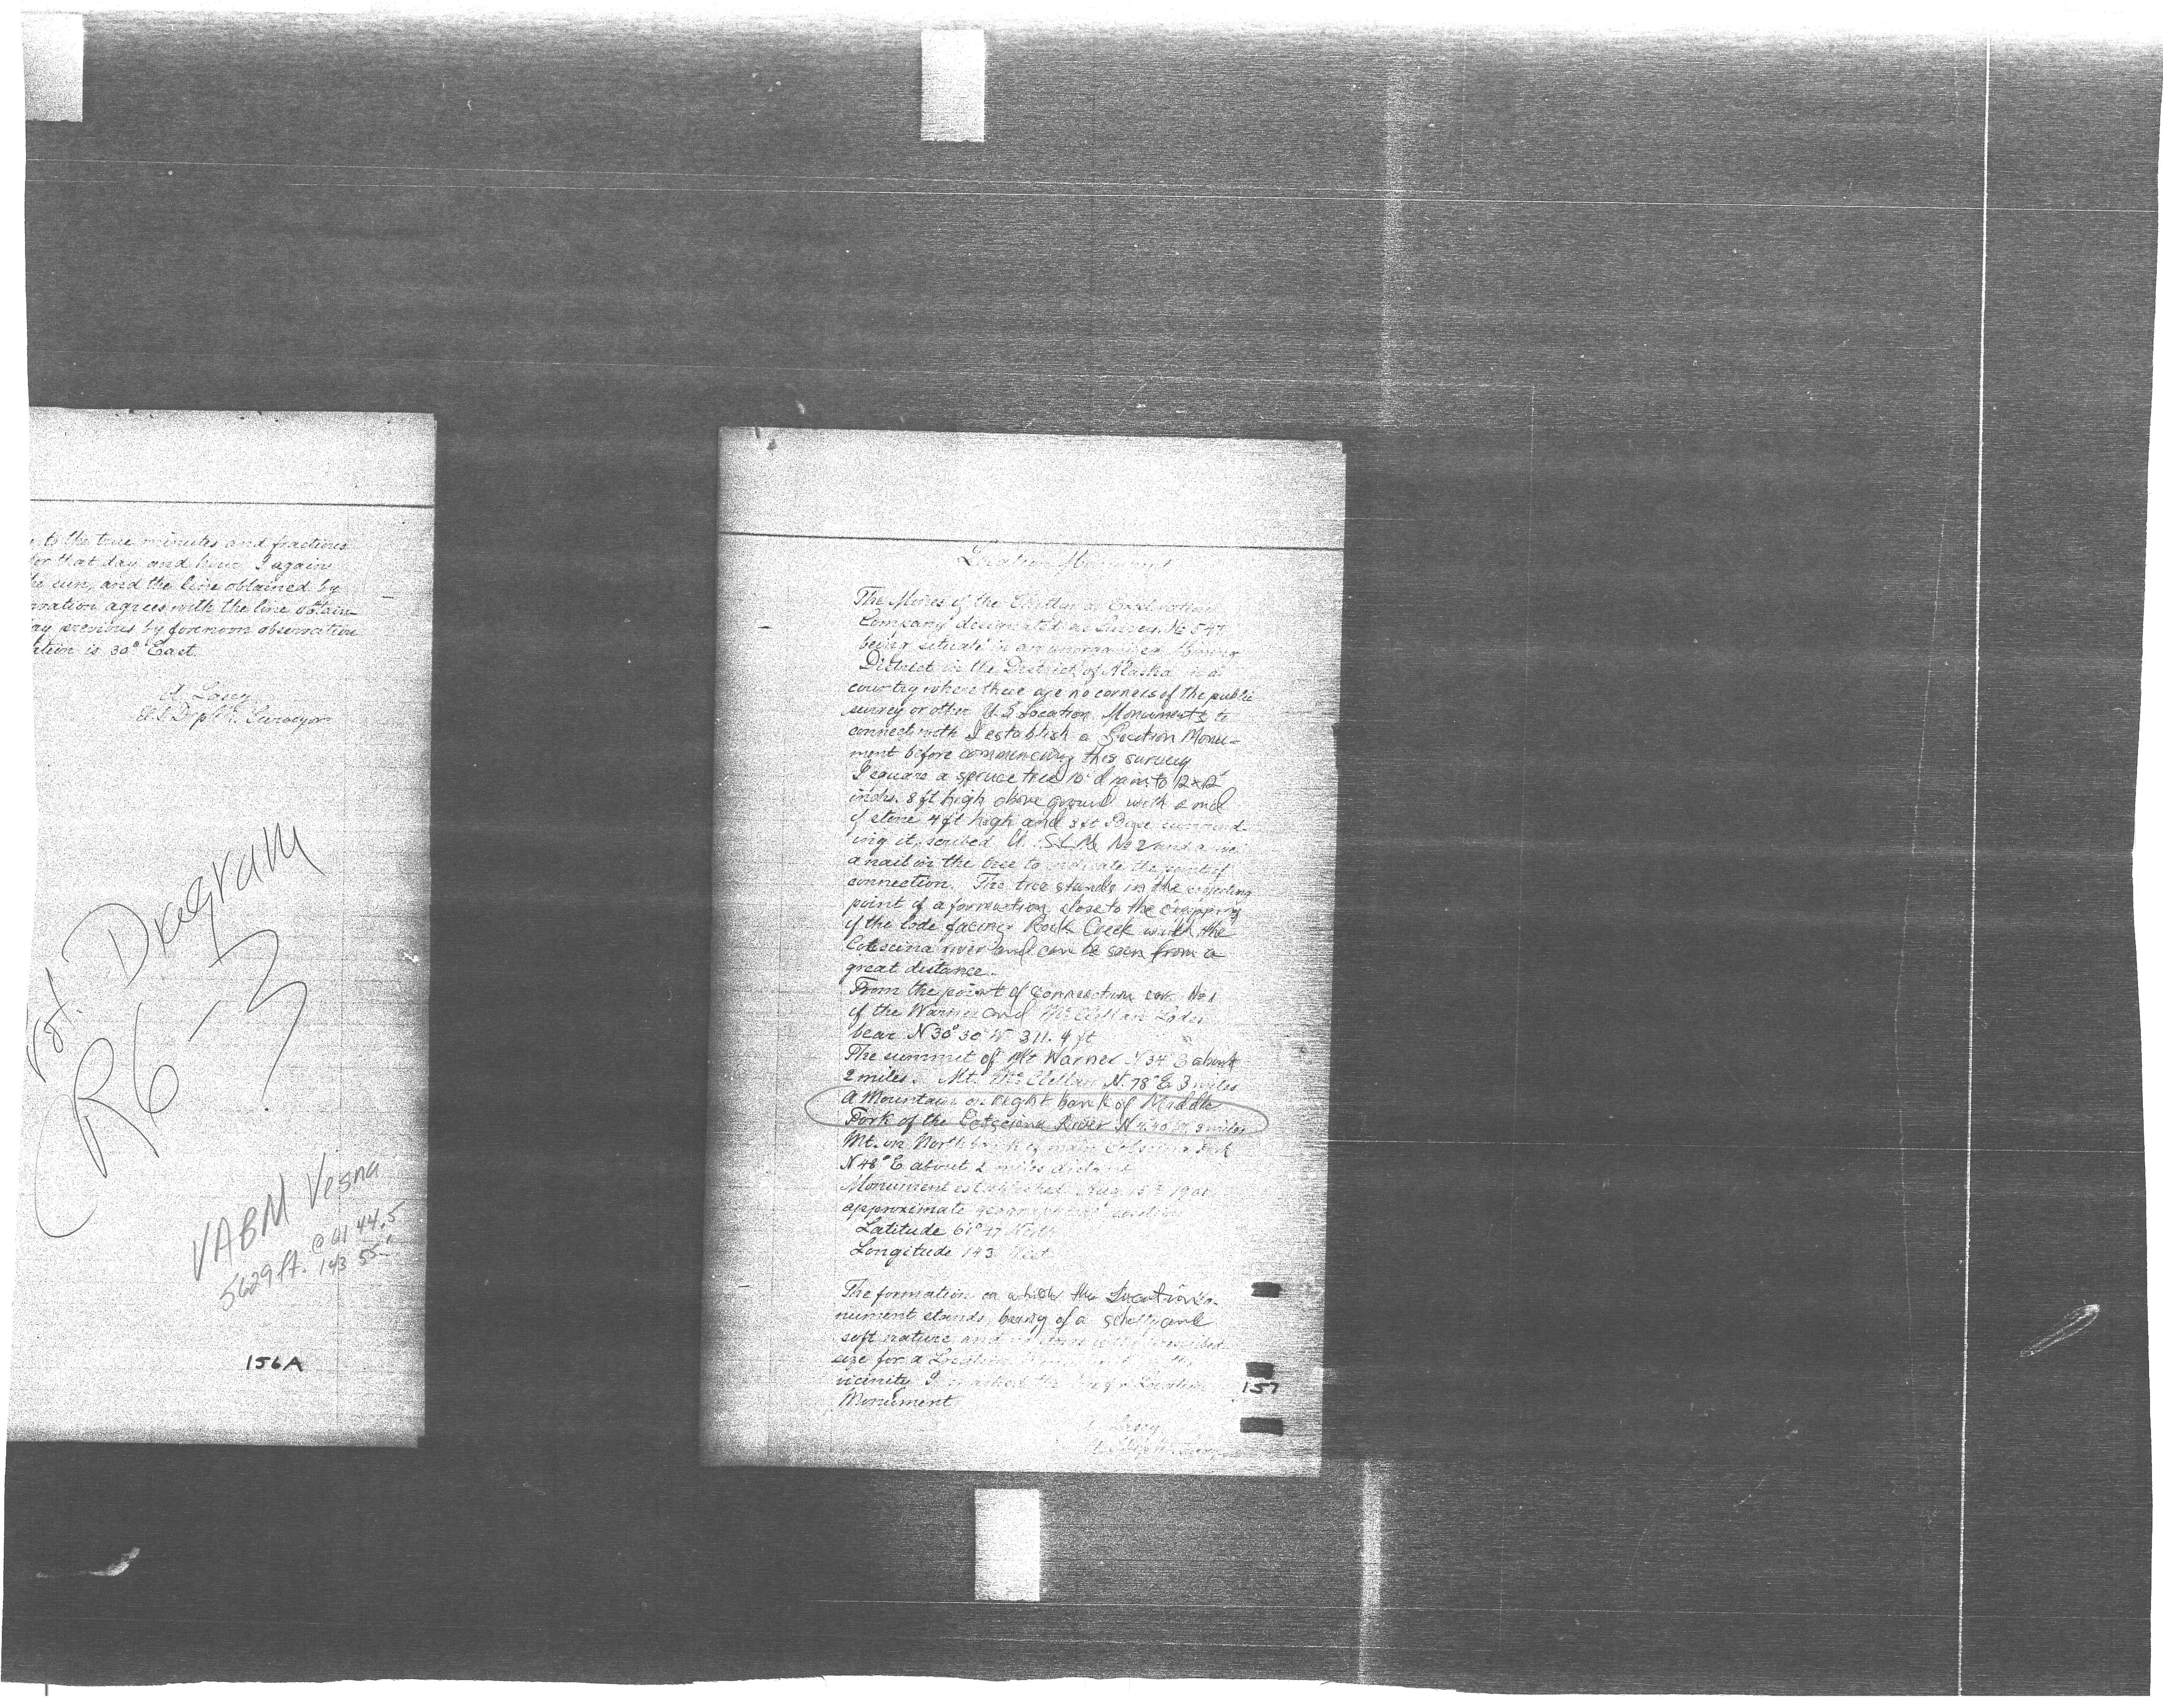 to the true minutes and fractions
for that day and hour I again
the sun, and the line obtained by
agrees with the line obtain-
previous by forenoon observation
is 30° East.
A. Lasey
U.S. Dep. M. Surveyor
Diagram
R6-3
VABM Vesna
5629 ft. @ 61 44.5
143 55
156A
Location Monument
The Mines of the Exploration
Company designated as Survey No 547
being situate in an unorganized Mining
District in the District of Alaska in a
country where there are no corners of the public
survey or other U.S Location Monuments to
connect with I establish a Location Monu-
ment before commencing this survey
I square a spruce tree to 12x12
8 ft high above ground with a md
of stone 4 ft high and 8 ft Base surround-
ing it, scribed U.S.L.M. No 2 and
a nail in the tree to indicate the point of
connection. The tree stands in the
point of a formation close to the cropping
of the lode facing Rock Creek with the
river and can be seen from a
great distance.
From the point of connection cor. No 1
of the Warner and McClellan Lodes
bear N 30° 30' W 311.4 ft
The summit of Mt Warner N 34° E about
2 miles. Mt. McClellan N. 78° E 3 miles
A Mountain on right bank of Middle
Fork of the River N miles
Mt. on North bank of main
N 48° E about 2 miles distant
Monument established Aug 190
approximate position
Latitude 61° North
Longitude 143 West
The formation on which the Location Mo-
nument stands, being of a shelly and
soft nature and
size for a Location
vicinity I the Location
Monument
157